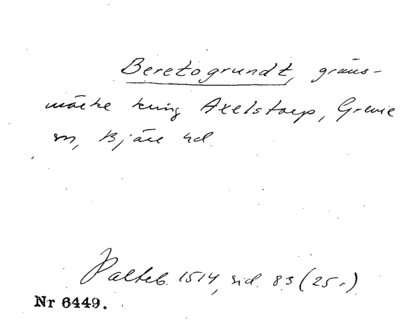 Beretogrundt, gräns-
märke kring Axelstorp, Grevie
sn, Bjäre hd.
Palteb. 1514, sid. 83 (25r)
Nr 6449.